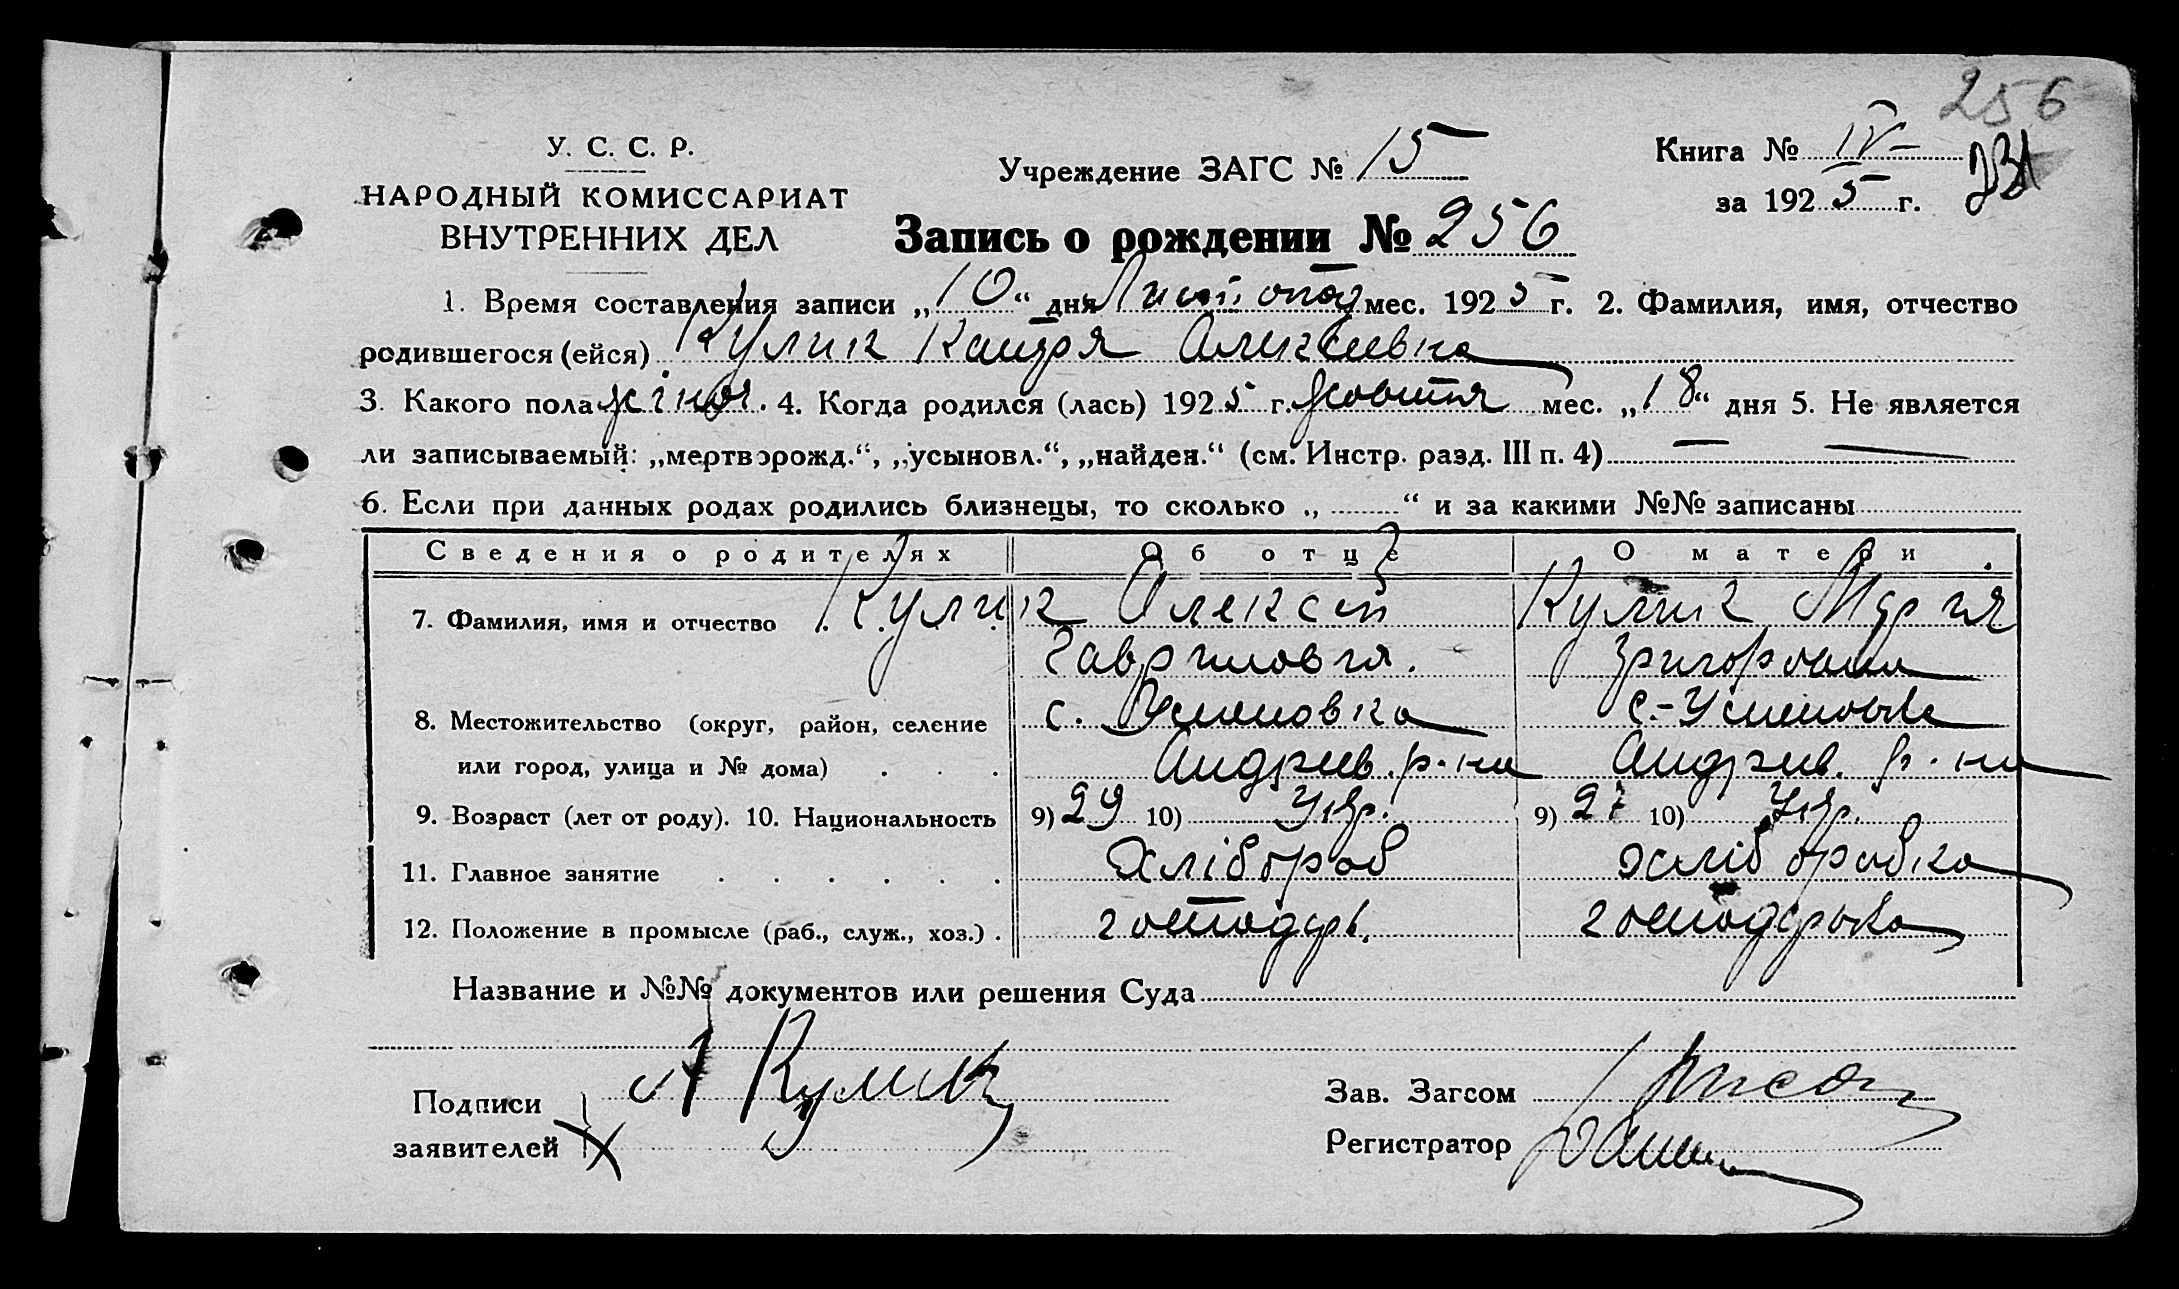 256
У. С. С. Р.
НАРОДНЫЙ КОМИССАРИАТ
ВНУТРЕННИХ ДЕЛ
Учреждение ЗАГС № 15
Книга № IV
за 1925 г.
Запись о рождении № 256
1. Время составления записи „10“ дня Листопад мес. 1925 г. 2. Фамилия, имя, отчество
родившегося (ейся) Кулик Алексеевна
3. Какого пола жіноч. 4. Когда родился (лась) 1925 г. жовтня мес. „18“ дня 5. Не является
ли записываемый: „мертворожд.“, „усыновл.“, „найден.“ (см. Инстр. разд. III п. 4) — —
6. Если при данных родах родились близнецы, то сколько „ “ и за какими №№ записаны
Сведения о родителях Об отце О матери
7. Фамилия, имя и отчество Кулик Олексій Кулик Марія
Гаврилович Григоровна
8. Местожительство (округ, район, селение с. Успеновка с.-Успеновка
или город, улица и № дома) Андріев. р-на Андріев. р-на
9. Возраст (лет от роду). 10. Национальность 9) 29 10) Укр. 9) 27 10) Укр.
11. Главное занятие Хлібороб хліборобка
12. Положение в промысле (раб., служ., хоз.) господарь. господарька
Название и №№ документов или решения Суда
Подписи А Кулик Зав. Загсом
заявителей Регистратор